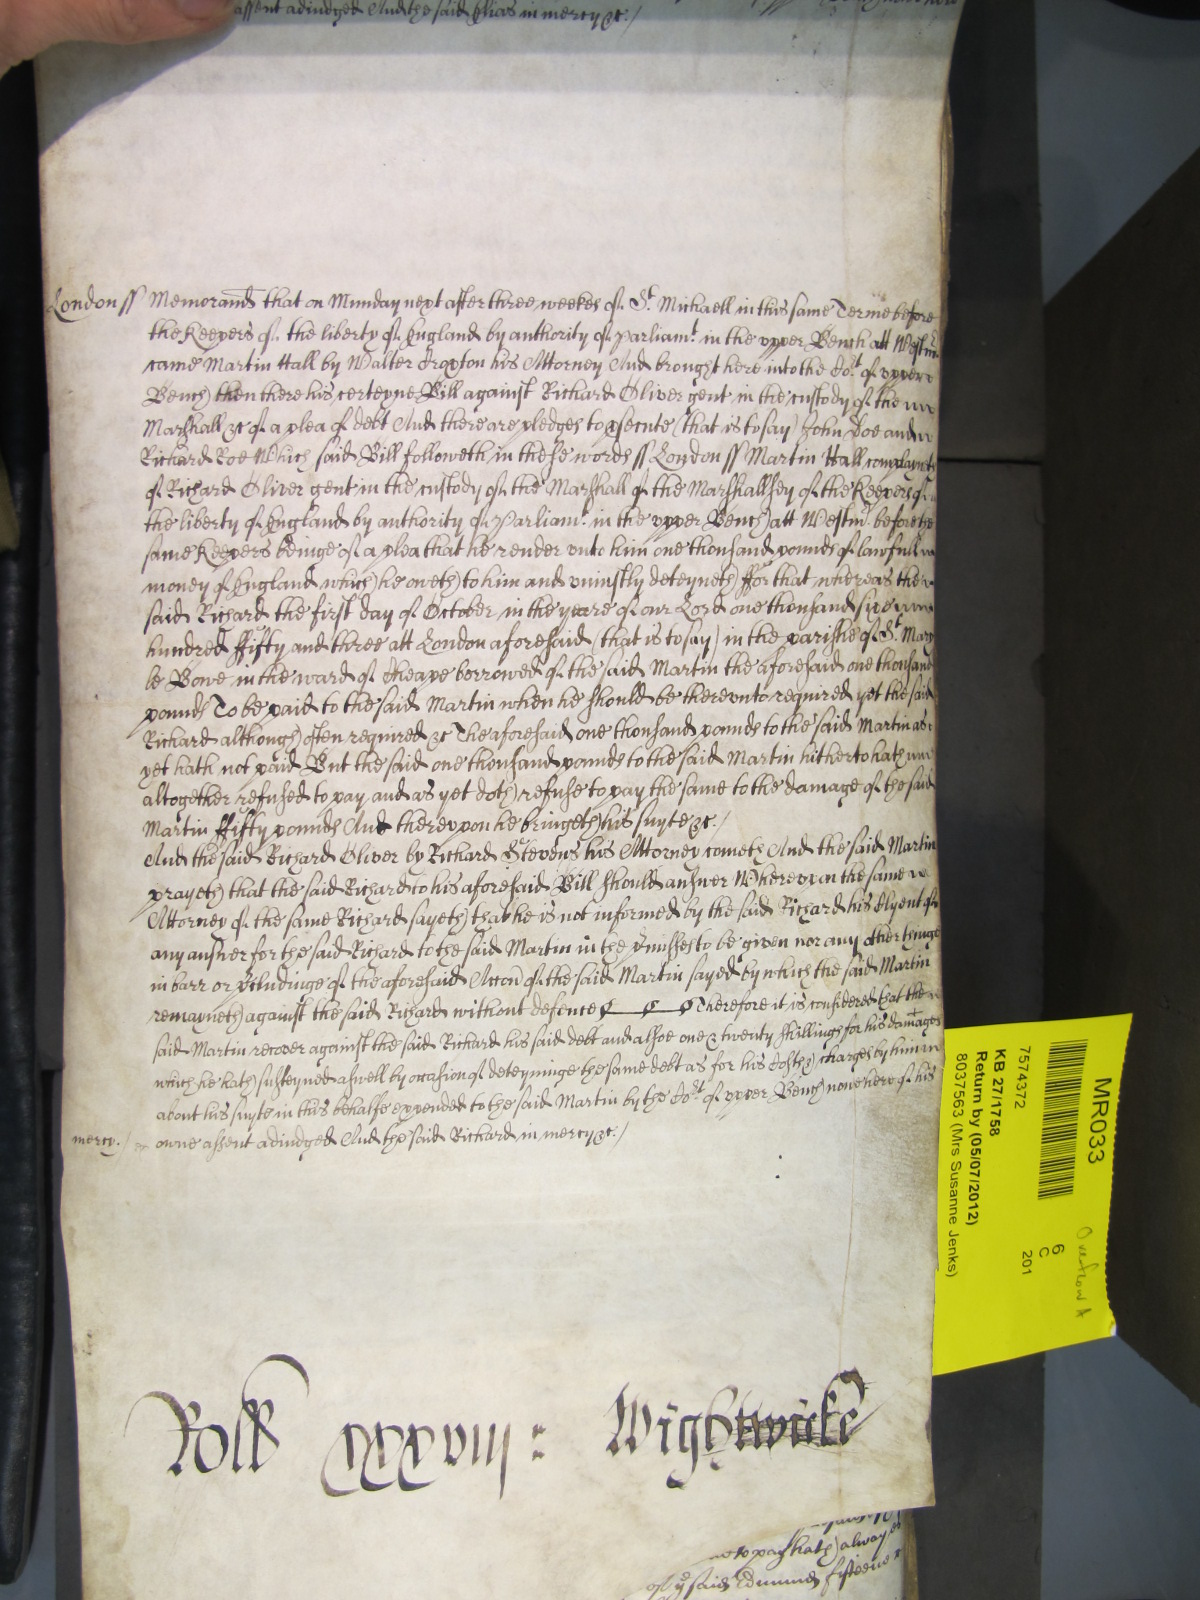 assent adiudged And the said Elias in mercy &c./
London ss Memorand that on Munday next after three weekes of St Michaell in this same Terme before
the Keepers of the liberty of England by authority of Parliamt in the vpper Bench att Westmr
came Martin Hall by Walter his Attorney And brought here into the Cort of vpper
Bench then there his certeyne Bill against Richard Oliver gent in the custody of the
Marshall &c of a plea of debt And there are pledges to psecute (that is to say) John Doe and
Richard Roe Which said Bill followeth in these words ss London ss Martin Hall complaynes
of Richard Oliver gent in the custody of the Marshall of the Marshallsey of the Keepers of
the liberty of England by authority of Parliamt in the vpper Bench att Westmr before the
same Keepers beinge of a plea that he render vnto him one thousand pounds of lawfull
money of England which he oweth to him and vniustly deteyneth ffor that whereas the
said Richard the first day of October in the yeare of our Lord one thousand sixe
hundred ffifty and three att London aforesaid (that is to say) in the parishe of St Mary
le Bowe in the ward of Cheape borrowed of the said Martin the aforesaid one thousand
pounds To be paid to the said Martin when he should be therevnto required yet the said
Richard although often required &c The aforesaid one thousand pounds to the said Martin as
yet hath not paid But the said one thousand pounds to the said Martin hitherto hath
altogether refused to pay and as yet doth refuse to pay the same to the damage of the said
Martin ffifty pounds And therevpon he bringeth his suyte &c./
And the said Richard Oliver by Richard Stevens his Attorney cometh And the said Martin
prayeth that the said Richard to his aforesaid Bill should answer Wherevpon the same
Attorney of the same Richard sayeth that he is not informed by the said Richard his Clyent of
any answer for the said Richard to the said Martin in the pmisses to be given nor any other thinge
in barr or pcludinge of the aforesaid Accon of the said Martin sayed by which the said Martin
remayneth against the said Richard without defence Therefore it is considered that the
said Martin recover against the said Richard his said debt and alsoe one & twenty shillings for his damages
which he hath susteyned aswell by occasion of deteyninge the same debt as for his Costs & charges by him
about his suyte in this behalfe expended to the said Martin by the Cort of vpper Bench nowe here of his
mercy./ owne assent adiudged And the said Richard in mercy &c./
Roll xxxviij : Wightwicke
to pay hath alwayes
of ye said Edmund fifteene
MR033
7574372
KB 27/1758
Return by (05/07/2012)
8037563 (Mrs Susanne Jenks)
6
C
201
Overflow A